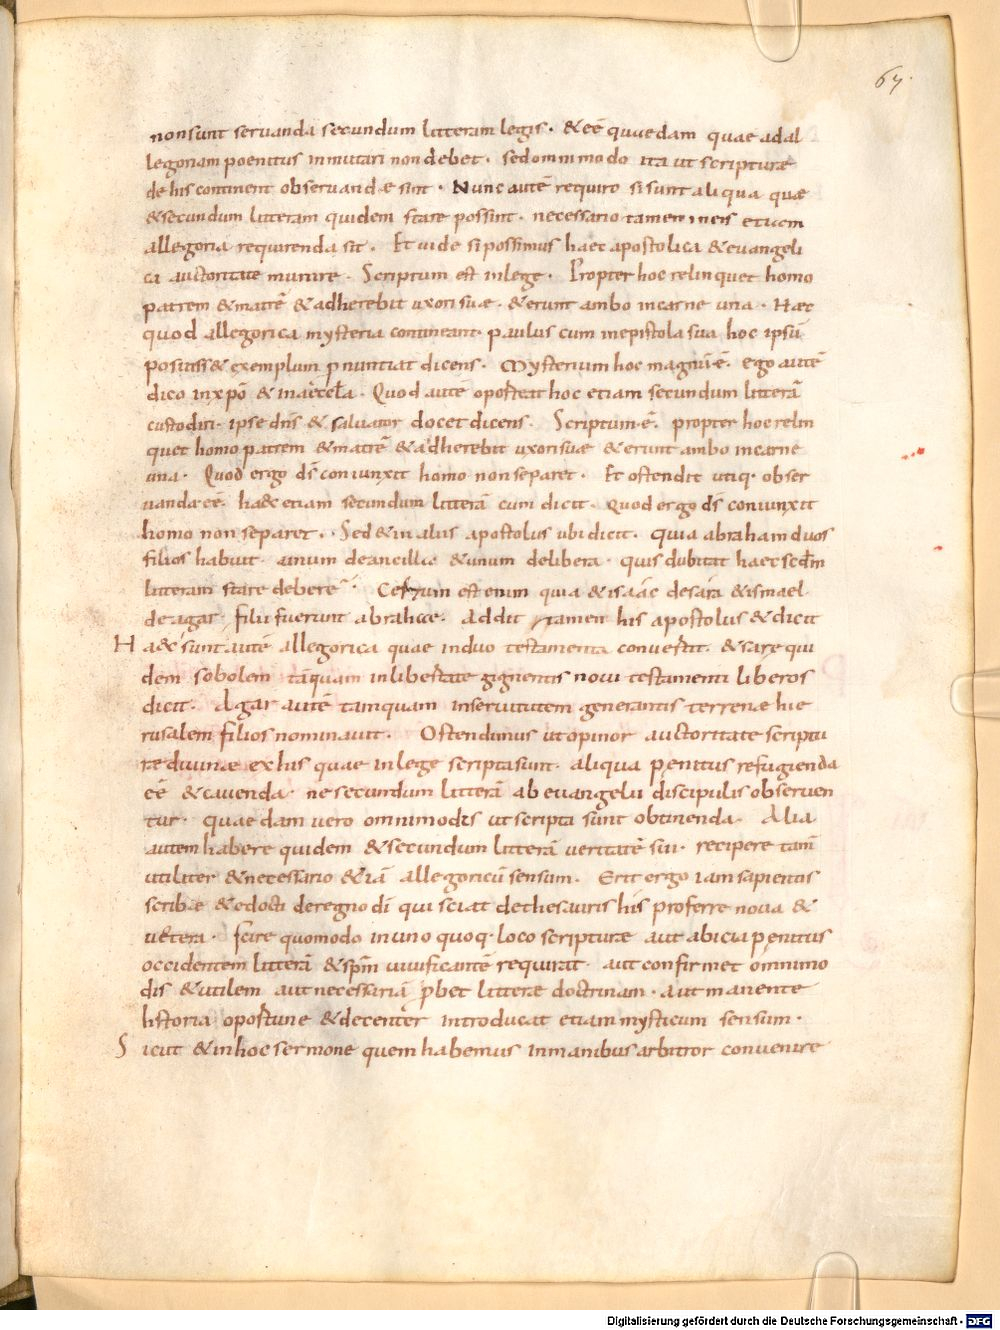 67.
non sunt servanda secundum litteram legis. &eē quaedam quae ad al
legoriam poenitus inmutari non debet. sed omnimodo ita ut scripturæ
de his continent observandæ sint. Nunc autē requiro si sunt aliqua quæ
& secundum litteram quidem stare possint. necessario tamen in eis etiam
allegoria requirenda sit. Et vide si possimus haec apostolica & evangeli
ca auctoritate munire. Scriptum est in lege. Propter hoc relinquet homo
patrem & matrē & adherebit uxori suæ. & erunt ambo in carne una. Haec
quod allegorica mysteria contineant. paulus cum in epistola sua hoc ipsū
posuiss& exemplum pnuntiat dicens. Mysterium hoc magnū ē. ego autē
dico in xpō & in aeccl̄a. Quod autē oporteat hoc etiam secundum litterā
custodiri. ipse dn̄s & salvator docet dicens. Scriptum ē. propter hoc relin
quet homo patrem & matrē & adherebit uxori suæ & erunt ambo in carne
una. Quod ergo d̄s coniunxit homo non separet. Et ostendit utiq. obser
vanda eē. haec etiam secundum litterā cum dicit. Quod ergo d̄s coniunxit
homo non separet. Sed & in aliis apostolus ubi dicit. Quia abraham duos
filios habuit. unum de ancilla & unum de libera. quis dubitat haec scd̄m
litteram stare debere. Certum est enim quia & isaac de sara & ismael
de agar. filii fuerunt abrahæ. Addit tamen his apostolus & dicit
Haec sunt autē allegorica quae in duo testamenta convertit. & sare qui
dem sobolem tāquam in libertate gignentis novi testamenti liberos
dicit. Agar autē tamquam in servitutem generantis terrenæ hie
rusalem filios nominavit. Ostendimus ut opinor auctoritate scriptu
ræ divinæ ex his quae in lege scripta sunt. aliqua penitus refugienda
eē & cavenda. ne secundum litterā ab evangelii discipulis observen
tur. quaedam vero omnimodis ut scripta sunt obtinenda. Alia
autem habere quidem & secundum litterā veritatē sui. recipere tam̄
utiliter & necessario & iā allegoricū sensum. Erit ergo iam sapientis
scribæ & edocti de regno dī qui sciat de thesauris his proferre nova &
vetera. scire quomodo in uno quoq. loco scripturæ aut abicia penitus
occidentem litterā & spm̄ vivificantē requirat. aut confirmet omnimo
dis & utilem aut necessariā pbet litteræ doctrinam. aut manente
historia oportune & decenter introducat etiam mysticum sensum.
Sicut & in hoc sermone quem habemus in manibus arbitror convenire
Digitalisierung gefördert durch die Deutsche Forschungsgemeinschaft - DFG